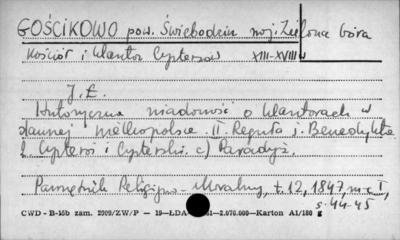 GOŚCIKOWO pow. Świebodzin woj. Zielona Góra
Kościół i klasztor Cystersów XIII-XVIII w
J. Ł.
Historyczna wiadomość o klasztorach w
dawnej Wielkopolsce. II. Reguła ś. Benedykta
b Cystersi i Cysterski. c) Paradyż.
Pamiętnik Religijno-Moralny, t. 12, 1847, nr 1,
s. 44-45
CWD - B-15b zam. 2909/ZW/P - 19-ŁDA- -81-2.070.000-Karton A1/180 g